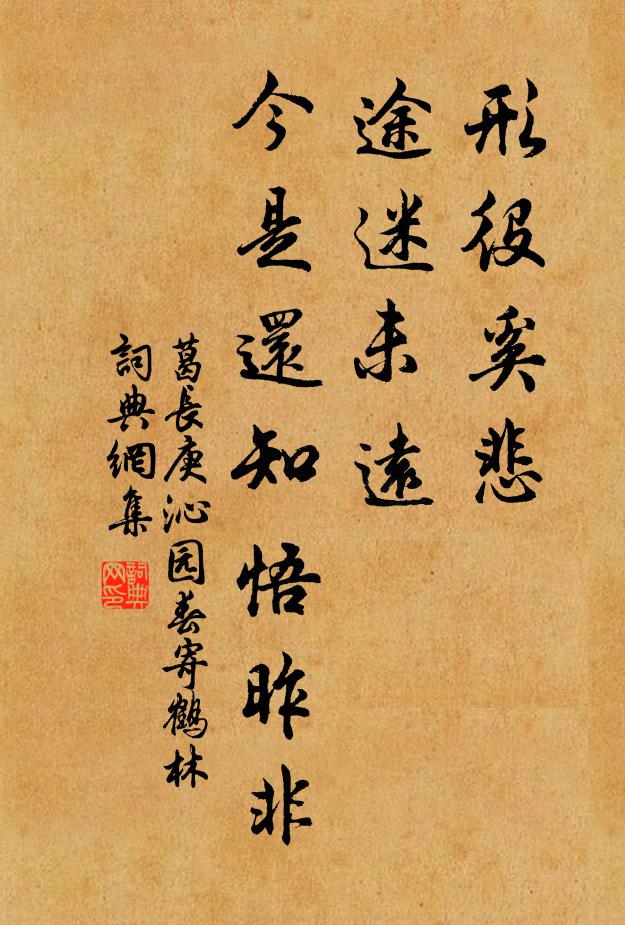 形役奚悲
途迷未遠
今是還知悟昨非
葛長庚沁园春寄鶴林
詞典網集
詞典网印